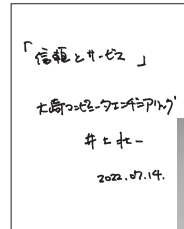 「信頼とサービス」
大崎コンピュータエンヂニアリング
井上壮一
2022.07.14.